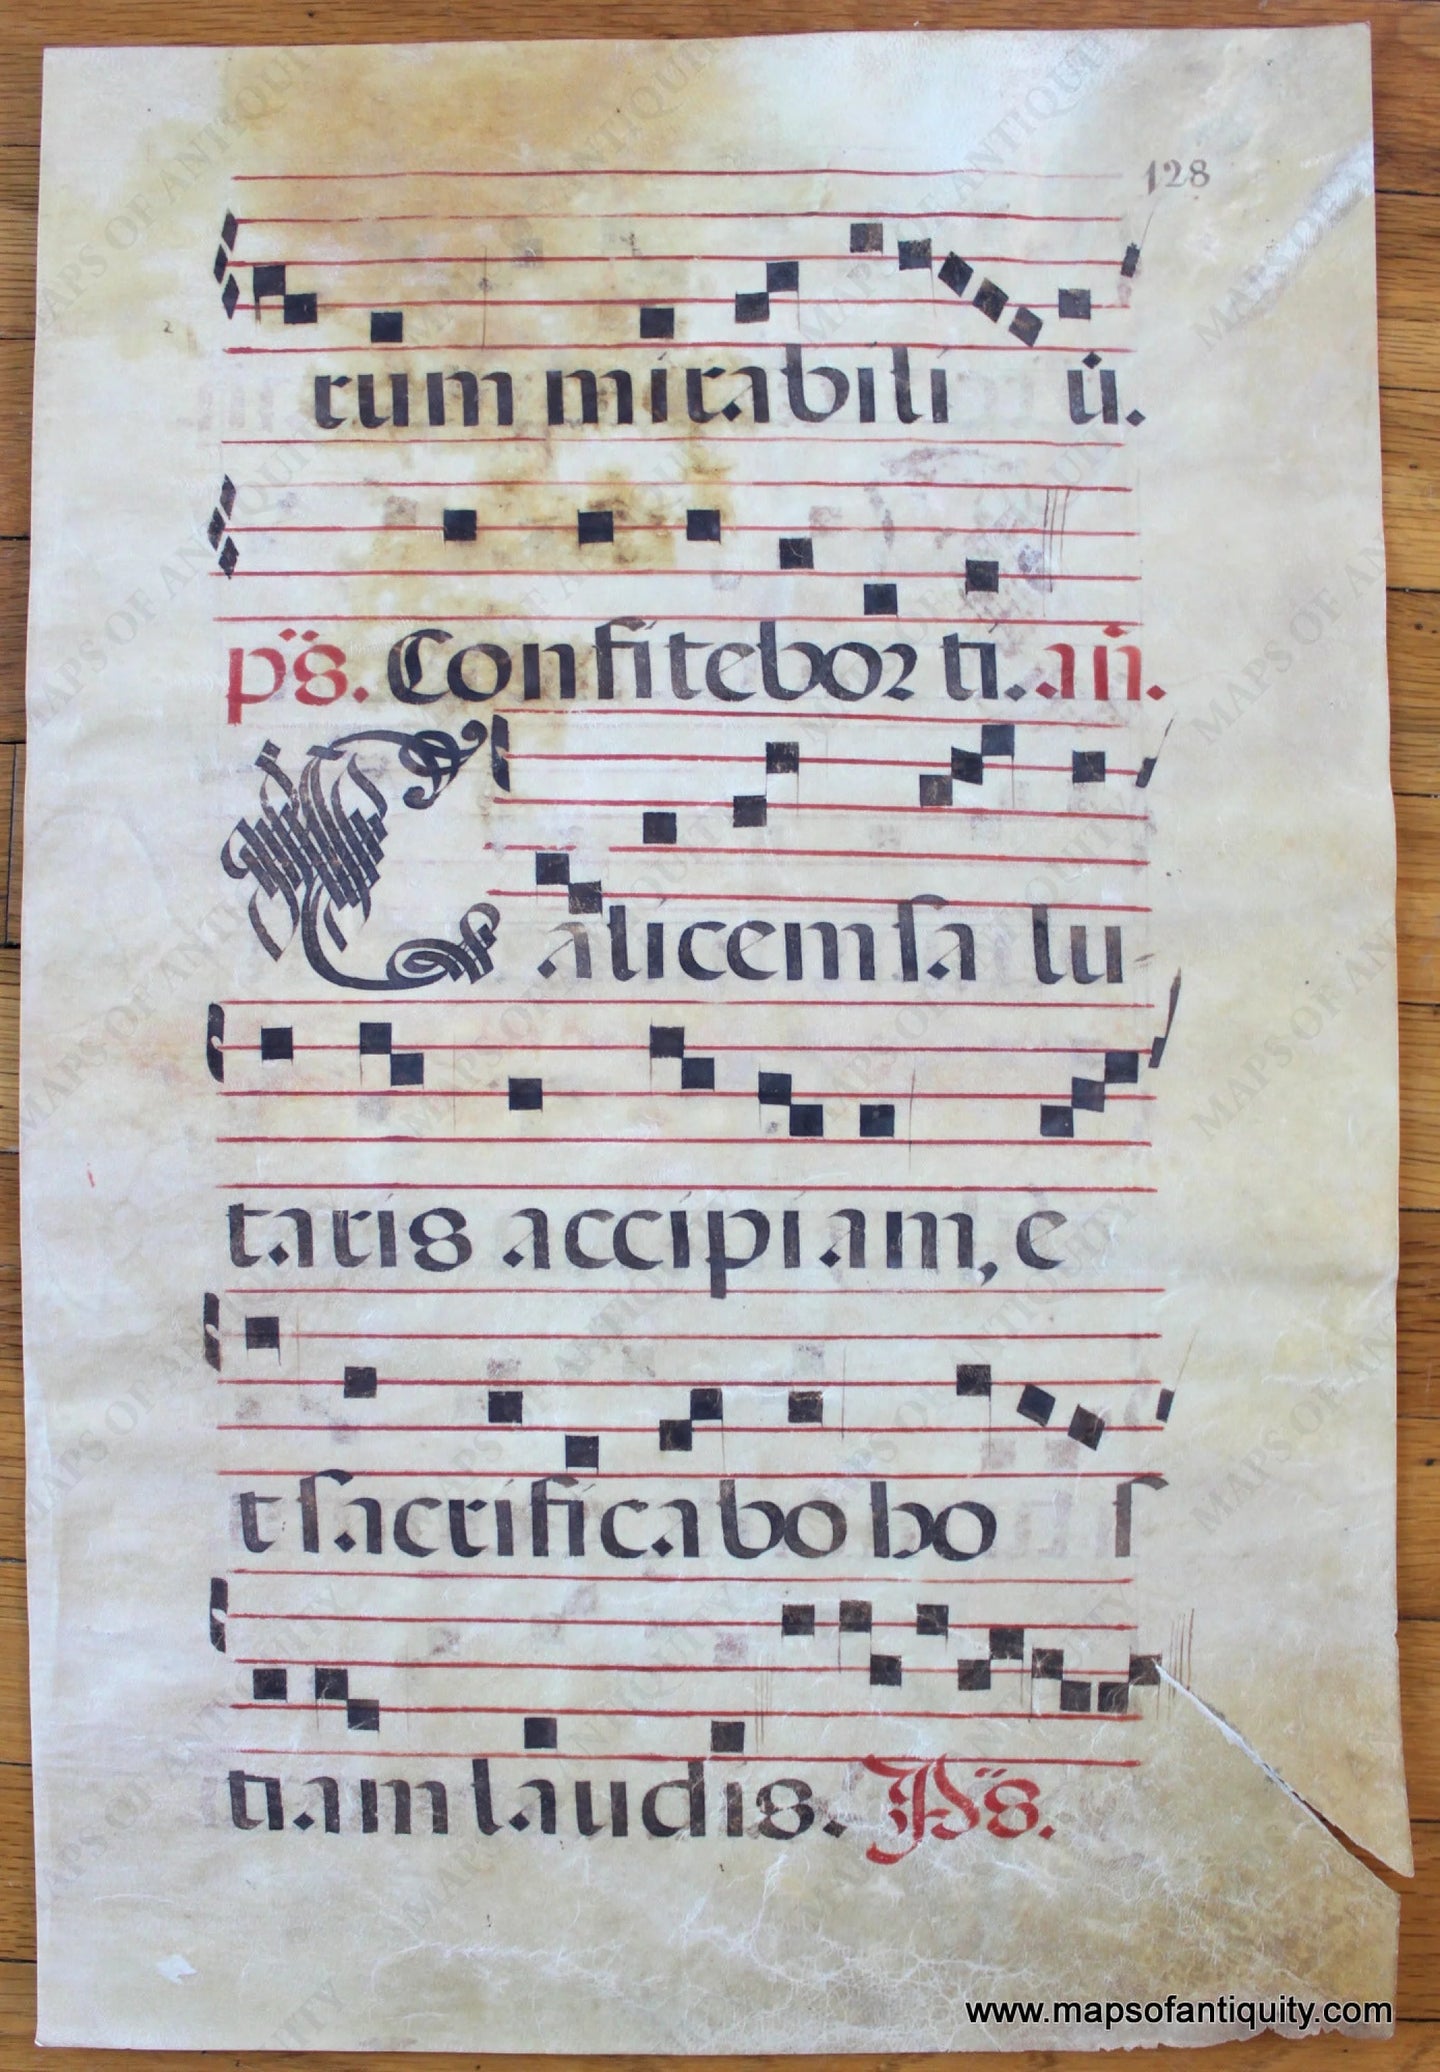 128
rum mirabili ũ.
ps. Confitebor ti. añ.
Calicem sa lu-
taris accipiam, e
t sacrificabo ho s
tiam laudis. Ps.
www.mapsofantiquity.com